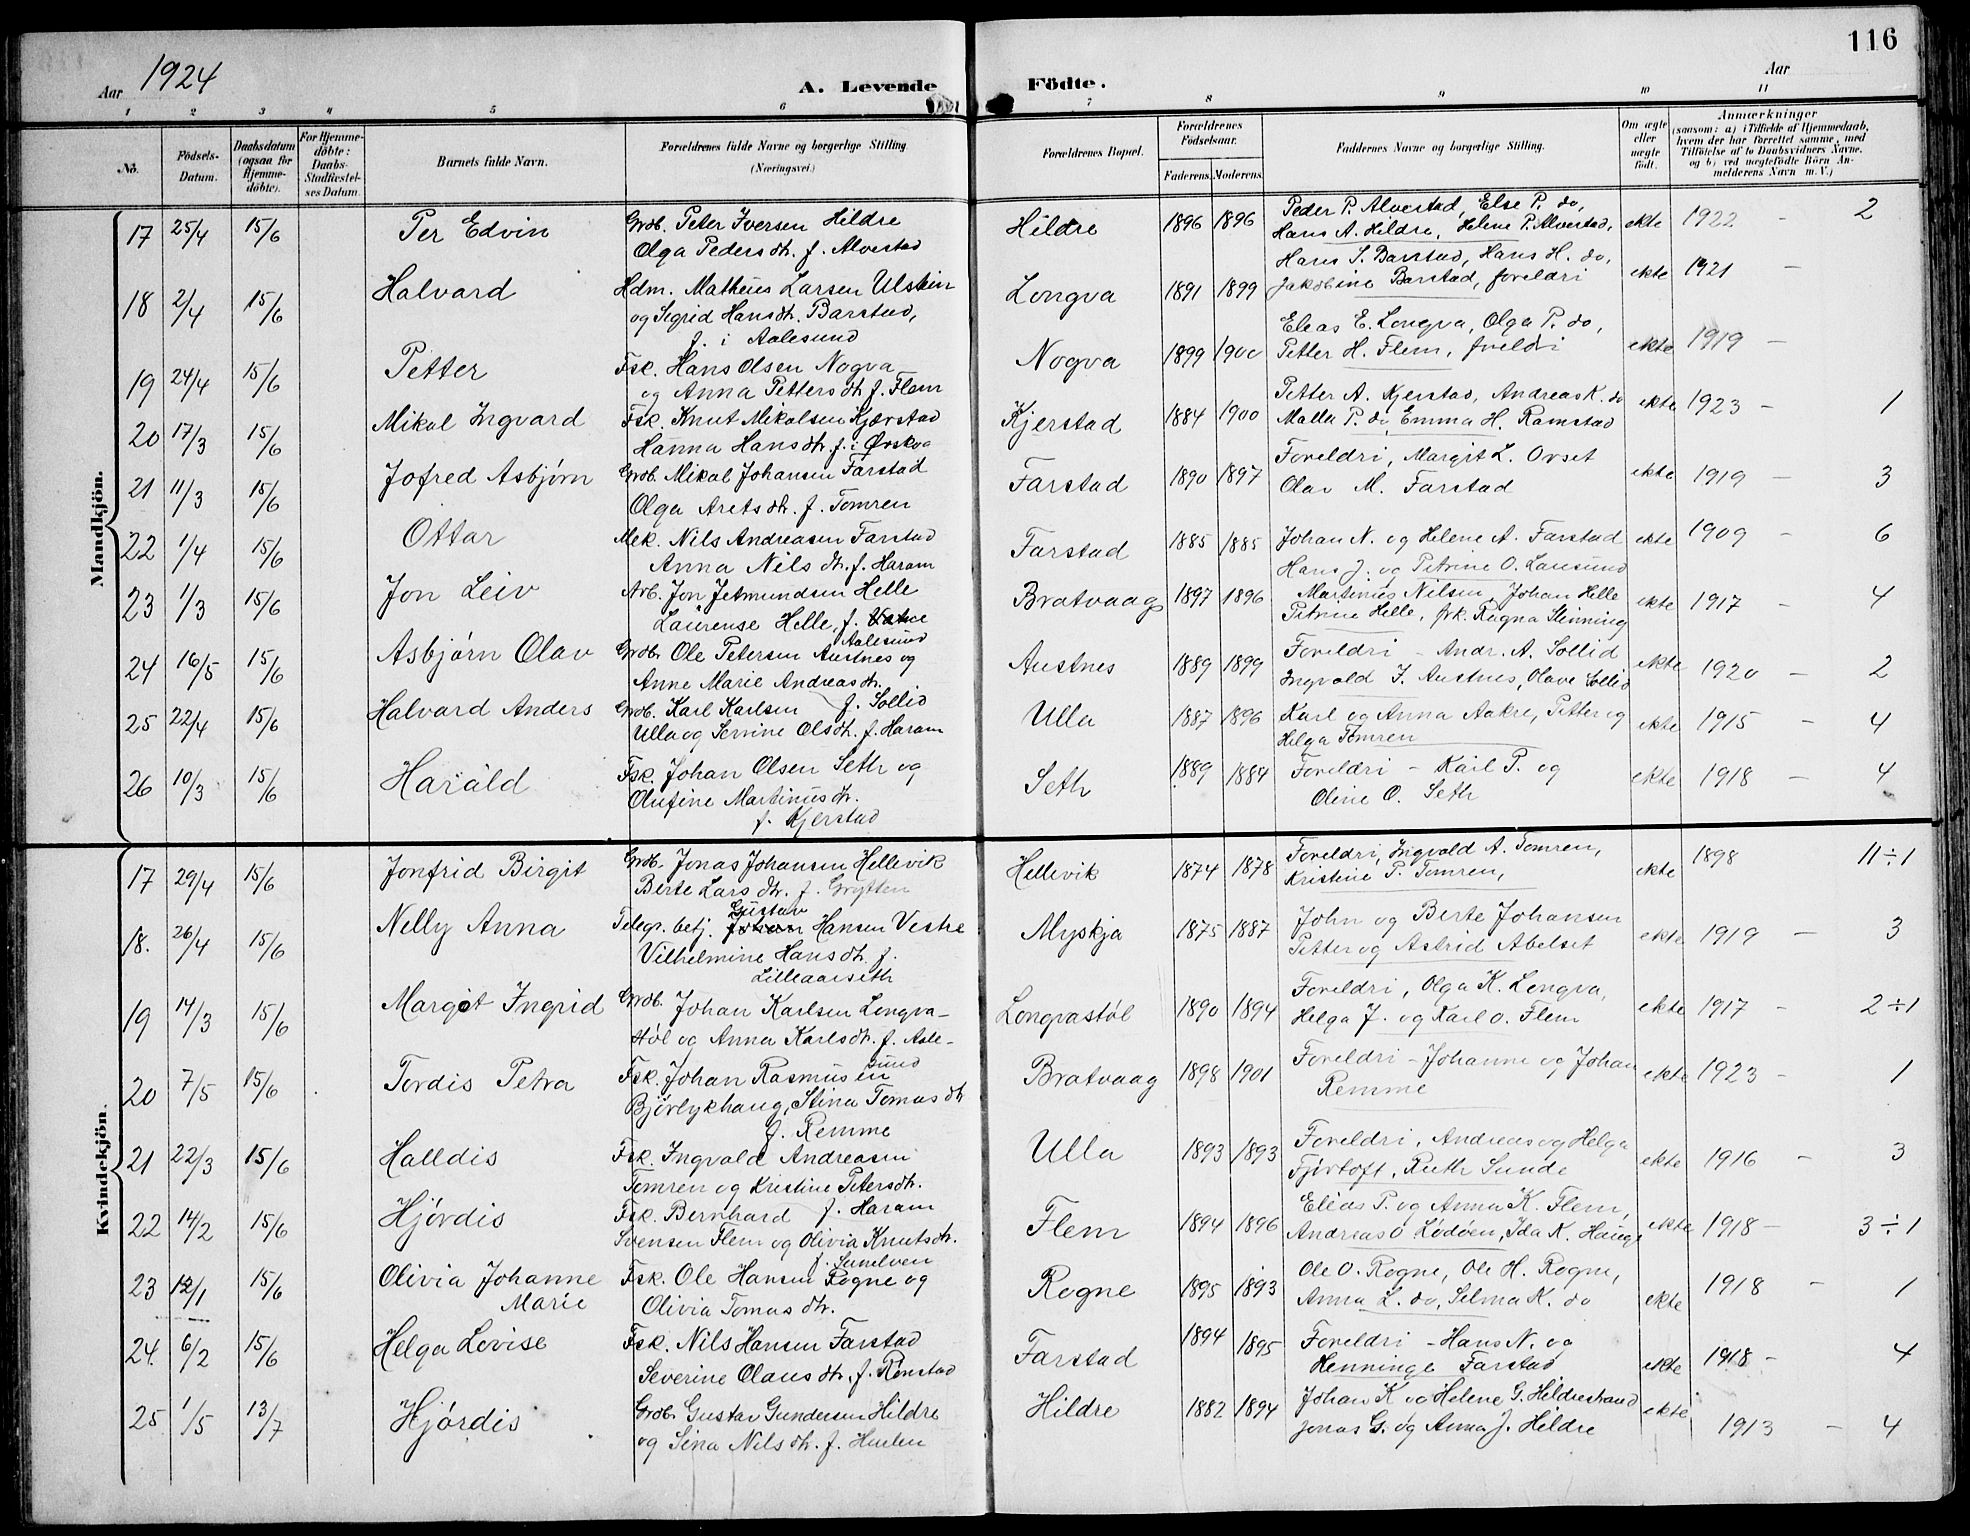 116
Aar 1924
A. Levende Födte.
Aar
1 2 3 4 5 6 7 8 9 10 11
No.
Födsels-Datum.
Daabsdatum (ogsaa for Hjemme-döbte).
For Hjemme-döbte: Daabs-Stadfæstel-ses Datum.
Barnets fulde Navn.
Forældrenes fulde Navne og borgerlige Stilling.
(Næringsvei.)
Forældrenes Bopæl.
Forældrenes Födselsaar.
Faderens. Moderens.
Faddernes Navne og borgerlige Stilling.
Om ægte eller uægte födt.
Anmærkninger
(saasom: a) i Tilfælde af Hjemmedaab, hvem der har forrettet samme, med Tilföielse af to Daabsvidners Navne, og b) ved uægtefödte Börn An-melderens Navn m. V.)
Mandkjön.
17 25/4 15/6 Per Edvin Grdb. Peter Iversen Hildre Hildre 1896 1896 Peder P. Alvestad, Else P. do, ekte 1922 - 2
Olga Pedersdtr. f. Alvestad Hans A. Hildre, Helene P. Alvestad,
18 2/4 15/6 Halvard Hdm. Matheus Larsen Ulstein Longva 1891 1899 Hans S. Barstad, Hans H. do, ekte 1921 -
og Sigrid Hansdtr. Barstad, Jakobine Barstad, foreldri
f. i Aalesund
19 24/4 15/6 Petter Fsk. Hans Olsen Nogva Nogva 1899 1900 Elias E. Longva, Olga P. do, ekte 1919 -
og Anna Pettersdtr. f. Flem Petter H. Flem, foreldri
20 17/3 15/6 Mikal Ingvard Fsk. Knut Mikalsen Kjærstad Kjerstad 1884 1900 Petter A. Kjerstad, Andreas K. do ekte 1923 - 1
Hanna Hansdtr. f. i Ørskog Malla P. do, Emma H. Ramstad
21 11/3 15/6 Jofred Asbjørn Grdb. Mikal Johansen Farstad Farstad 1890 1897 Foreldri, Margit L. Ovset ekte 1919 - 3
Olga Aretsdtr. f. Tomren Olav M. Farstad
22 1/4 15/6 Ottar Mek. Nils Andreasen Farstad Farstad 1885 1885 Johan N. og Helene A. Farstad ekte 1909 - 6
Anna Nilsdtr. f. Haram Hans J. og Petrine O. Lausund
23 1/3 15/6 Jon Leiv Arb. Jon Jetmundsen Helle Bratvaag 1897 1896 Martinus Nilsen, Johan Helle ekte 1917 - 4
Laurense Helle, f. Vatne Aalesund Petrine Helle, frk. Ragna Slinning
24 16/5 15/6 Asbjørn Olav Grdbr. Ole Petersen Austnes og Austnes 1889 1899 Foreldri - Andr. A. Sollid ekte 1920 - 2
Anne Marie Andreasdtr. f. Sollid Ingvald I. Austnes, Olave Sollid
25 22/4 15/6 Halvard Anders Grdb. Karl Karlsen Ulla 1887 1896 Karl og Anna Aakre, Petter og ekte 1915 - 4
Ulla og Serine Olsdtr. f. Haram Helga Tomren
26 10/3 15/6 Harald Fsk. Johan Olsen Seth og Seth 1889 1884 Foreldri - Karl P. og ekte 1918 - 4
Olufine Martinusdtr. Oline O. Seth
f. Kjerstad
Kvindekjön.
17 29/4 15/6 Jonfrid Birgit Grdb. Jonas Johansen Hellevik Hellevik 1874 1878 Foreldri, Ingvald A. Tomren, ekte 1898 11÷1
Berte Larsdtr. f. Grytten Kristine P. Tomren,
18. 26/4 15/6 Nelly Anna Telegr. betj. Johan Gustav Hansen Vestre Myskja 1875 1887 John og Berte Johansen ekte 1919 - 3
Vilhelmine Hansdtr. f. Petter og Astrid Abelset
Lilleaarseth
19 14/3 15/6 Margot Ingrid Grdb. Johan Karlsen Longva- Longvastøl 1890 1894 Foreldri, Olga K. Longva, ekte 1917 - 2÷1
støl og Anna Karlsdtr. f. Aale-sund Helga J. og Karl O. Flem
20 7/5 15/6 Tordis Petra Fsk. Johan Rasmussen Bratvaag 1898 1901 Foreldri - Johanne og Johan ekte 1923 - 1
Bjørlykhaug, Stina Tomasdtr Remme
f. Remme
21 22/3 15/6 Halldis Fsk. Ingvald Andreasen Ulla 1893 1893 Foreldri, Andreas og Helga ekte 1916 - 3
Tomren og Kristine Petersdtr. f. Haram Fjørtoft, Ruth Sunde
22 14/2 15/6 Hjørdis Fsk. Bernhard Flem 1894 1896 Elias P. og Anna K. Flem, ekte 1918 - 3÷1
Svensen Flem og Olivia Knutsdtr. f. Sunelven Andreas O Lødøen, Ida K. Hauge
23 12/1 15/6 Olivia Johanne Marie Fsk. Ole Hansen Rogne og Rogne 1895 1893 Ole O. Rogne, Ole H. Rogne, ekte 1918 - 1
Olivia Tomasdtr. Anna L. do, Selma K. do
24. 6/2 15/6 Helga Lovise Fsk. Nils Hansen Farstad Farstad 1894 1895 Foreldri - Hans N. og ekte 1918 - 4
Severine Olausdtr. f. Rønstad Henninge Farstad
25 1/5 13/7 Hjørdis Grdbr Gustav Gundersen Hildre Hildre 1882 1894 Johan K og Helene G. Hildrestrand ekte 1913 - 4
og Sina Nilsdtr. f. Huelen Jonas G. og Anna J. Hildre